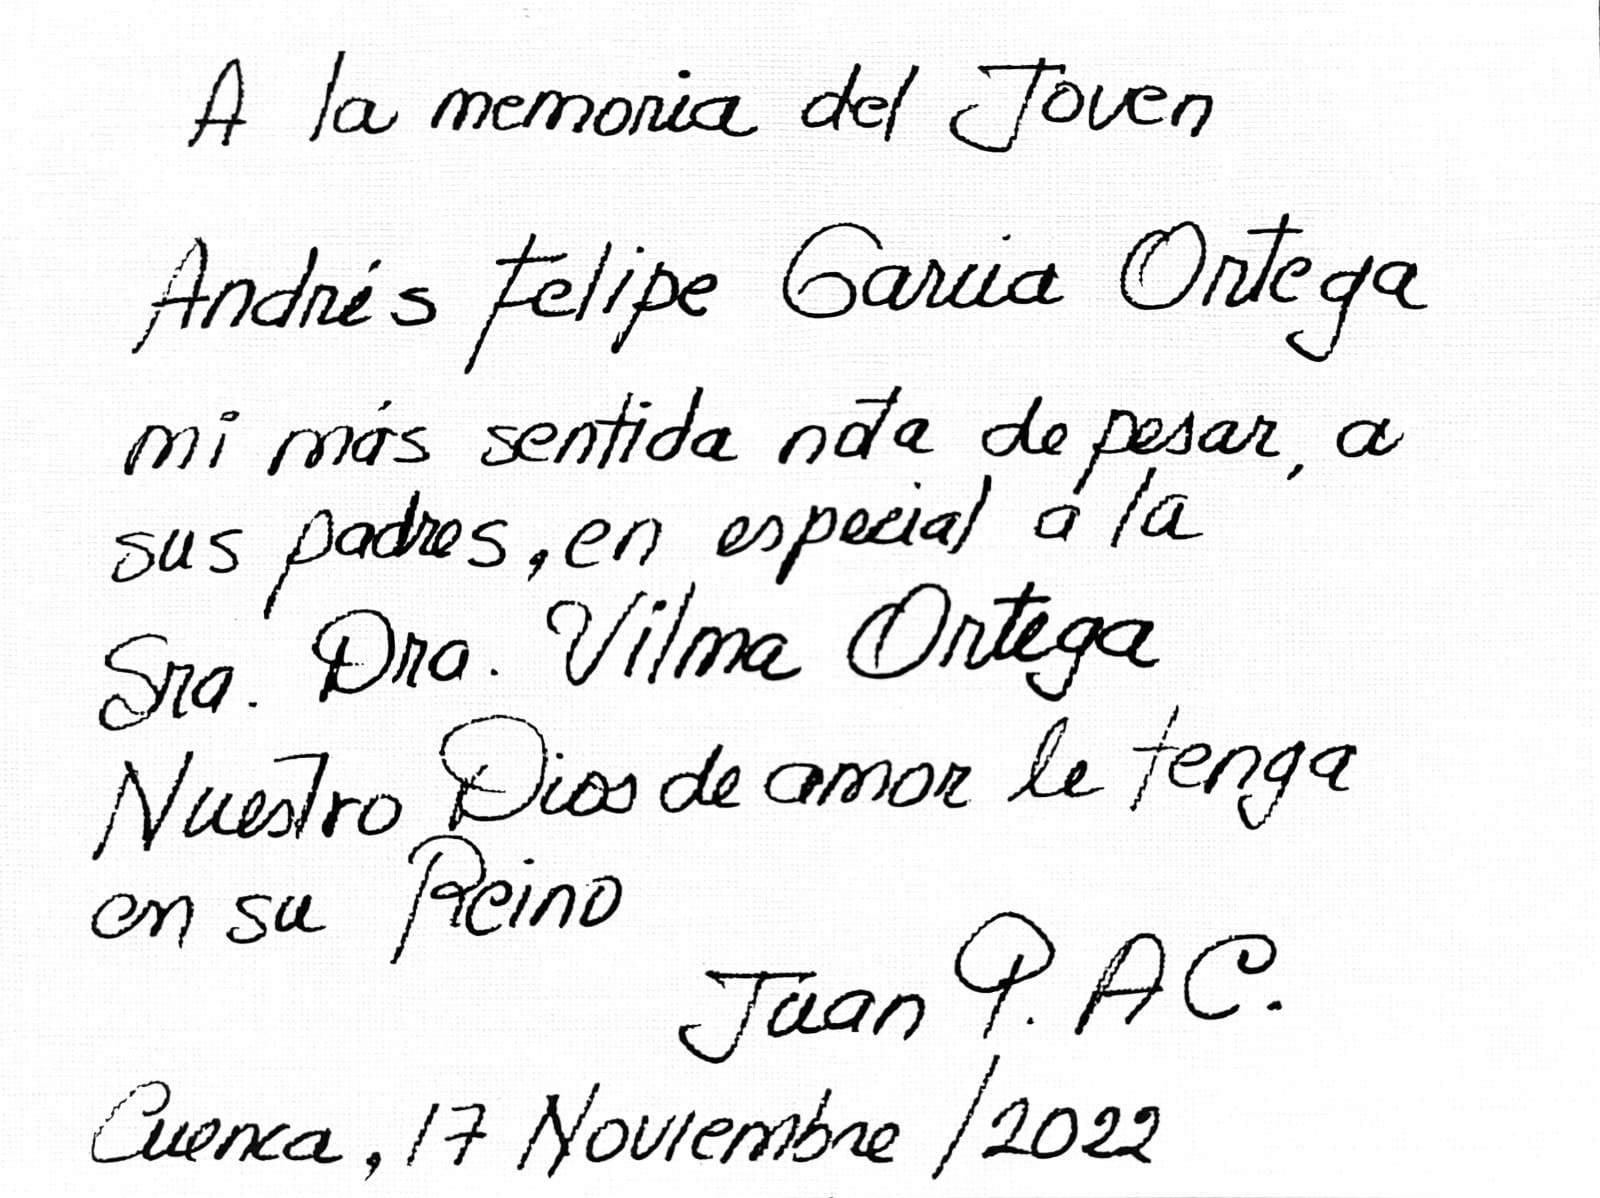 A la memoria del Joven
Andrés Felipe Garcia Ortega
mi más sentida nota de pesar, a
sus padres, en especial a la
Sra. Dra. Vilma Ortega
Nuestro Dios de amor le tenga
en su Reino
Juan P. A C.
Cuenca, 17 Noviembre / 2022